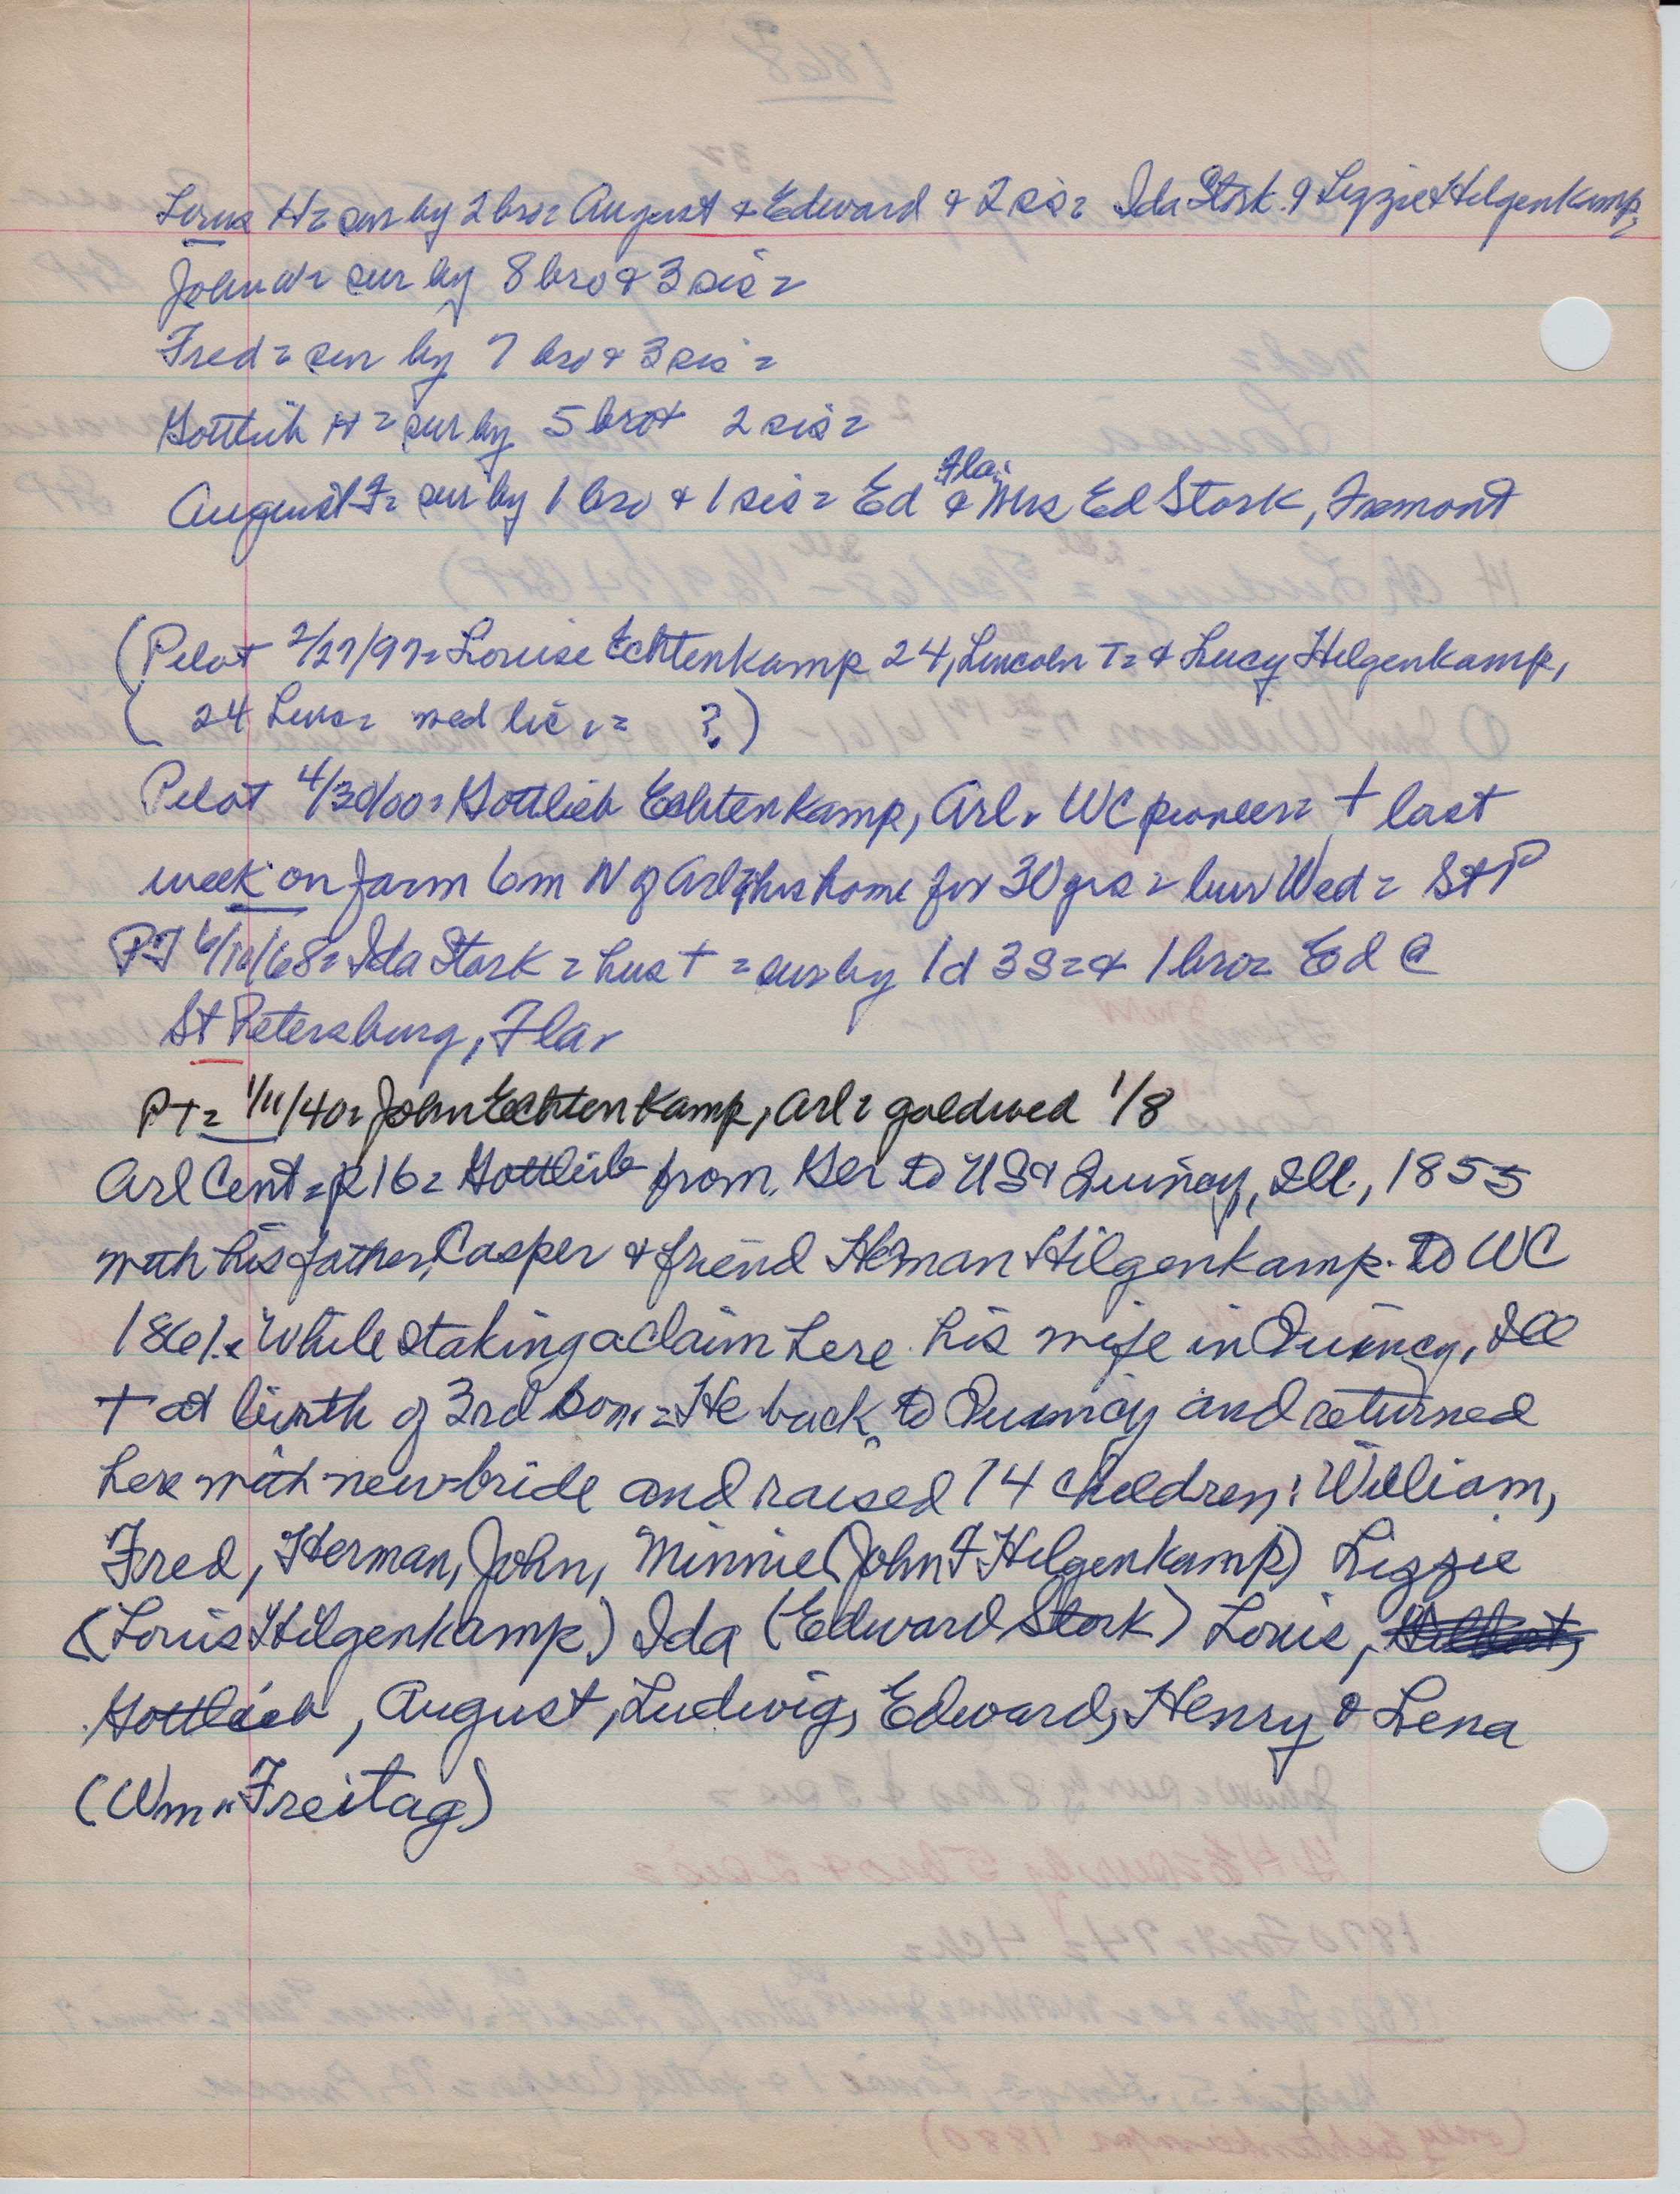 Louis H = sur by 2 bro = August & Edward & 2 sis = Ida Stork & Lizzie Hilgenkamp =
John W = sur by 8 bro & 3 sis =
Fred = sur by 7 bro & 3 sis =
Gottlieb H = sur by 5 bro & 2 sis =
August F = sur by 1 bro & 1 sis = Ed Fla. & Mrs Ed Stork, Fremont
(Pelot 2/27/97 = Louise Echtenkamp 24, Lincoln T = & Lucy Hilgenkamp,
( 24 wed lic. = ?)
Pelot 4/30/00 = Gottlieb Echtenkamp, Arl. WC pioneer = † last
week on farm 6m N of Arl his home for 30 yrs = bur Wed = St P
PT 6/10/68 = Ida Stork = hus † = sur by 1d 3s = & 1 bro = Ed @
St Petersburg, Fla.
PT = 1/11/40 = John Echtenkamp, Arl = gold wed 1/8
Arl Cent = p 16 = Gottlieb from Ger to US & Quincy, Ill., 1855
with his father, Casper & friend Herman Hilgenkamp. to WC
1861. While staking a claim here his wife in Quincy, Ill
† at birth of 3rd son. = He back to Quincy and returned
here with new bride and raised 14 children: William,
Fred, Herman, John, Minnie (John F Hilgenkamp) Lizzie
(Louis Hilgenkamp) Ida (Edward Stork) Louis,
Gottlieb, August, Ludwig, Edward, Henry & Lena
(Wm. Freitag)